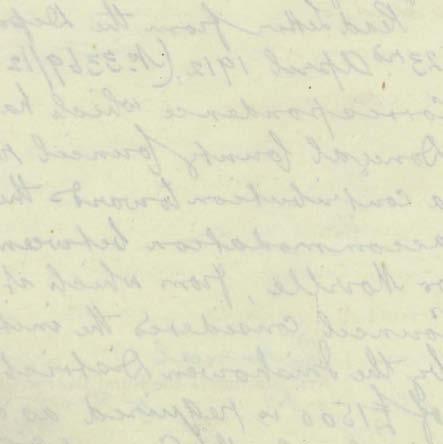 Read letter from the Depa
23rd April 1912 (No. 3369/12
correspondence which ha
Donegal County Council re
a contribution towards the
accommodation between
or Moville, from which it
Council considers the
by the Inishowen District
of £1500 is required as